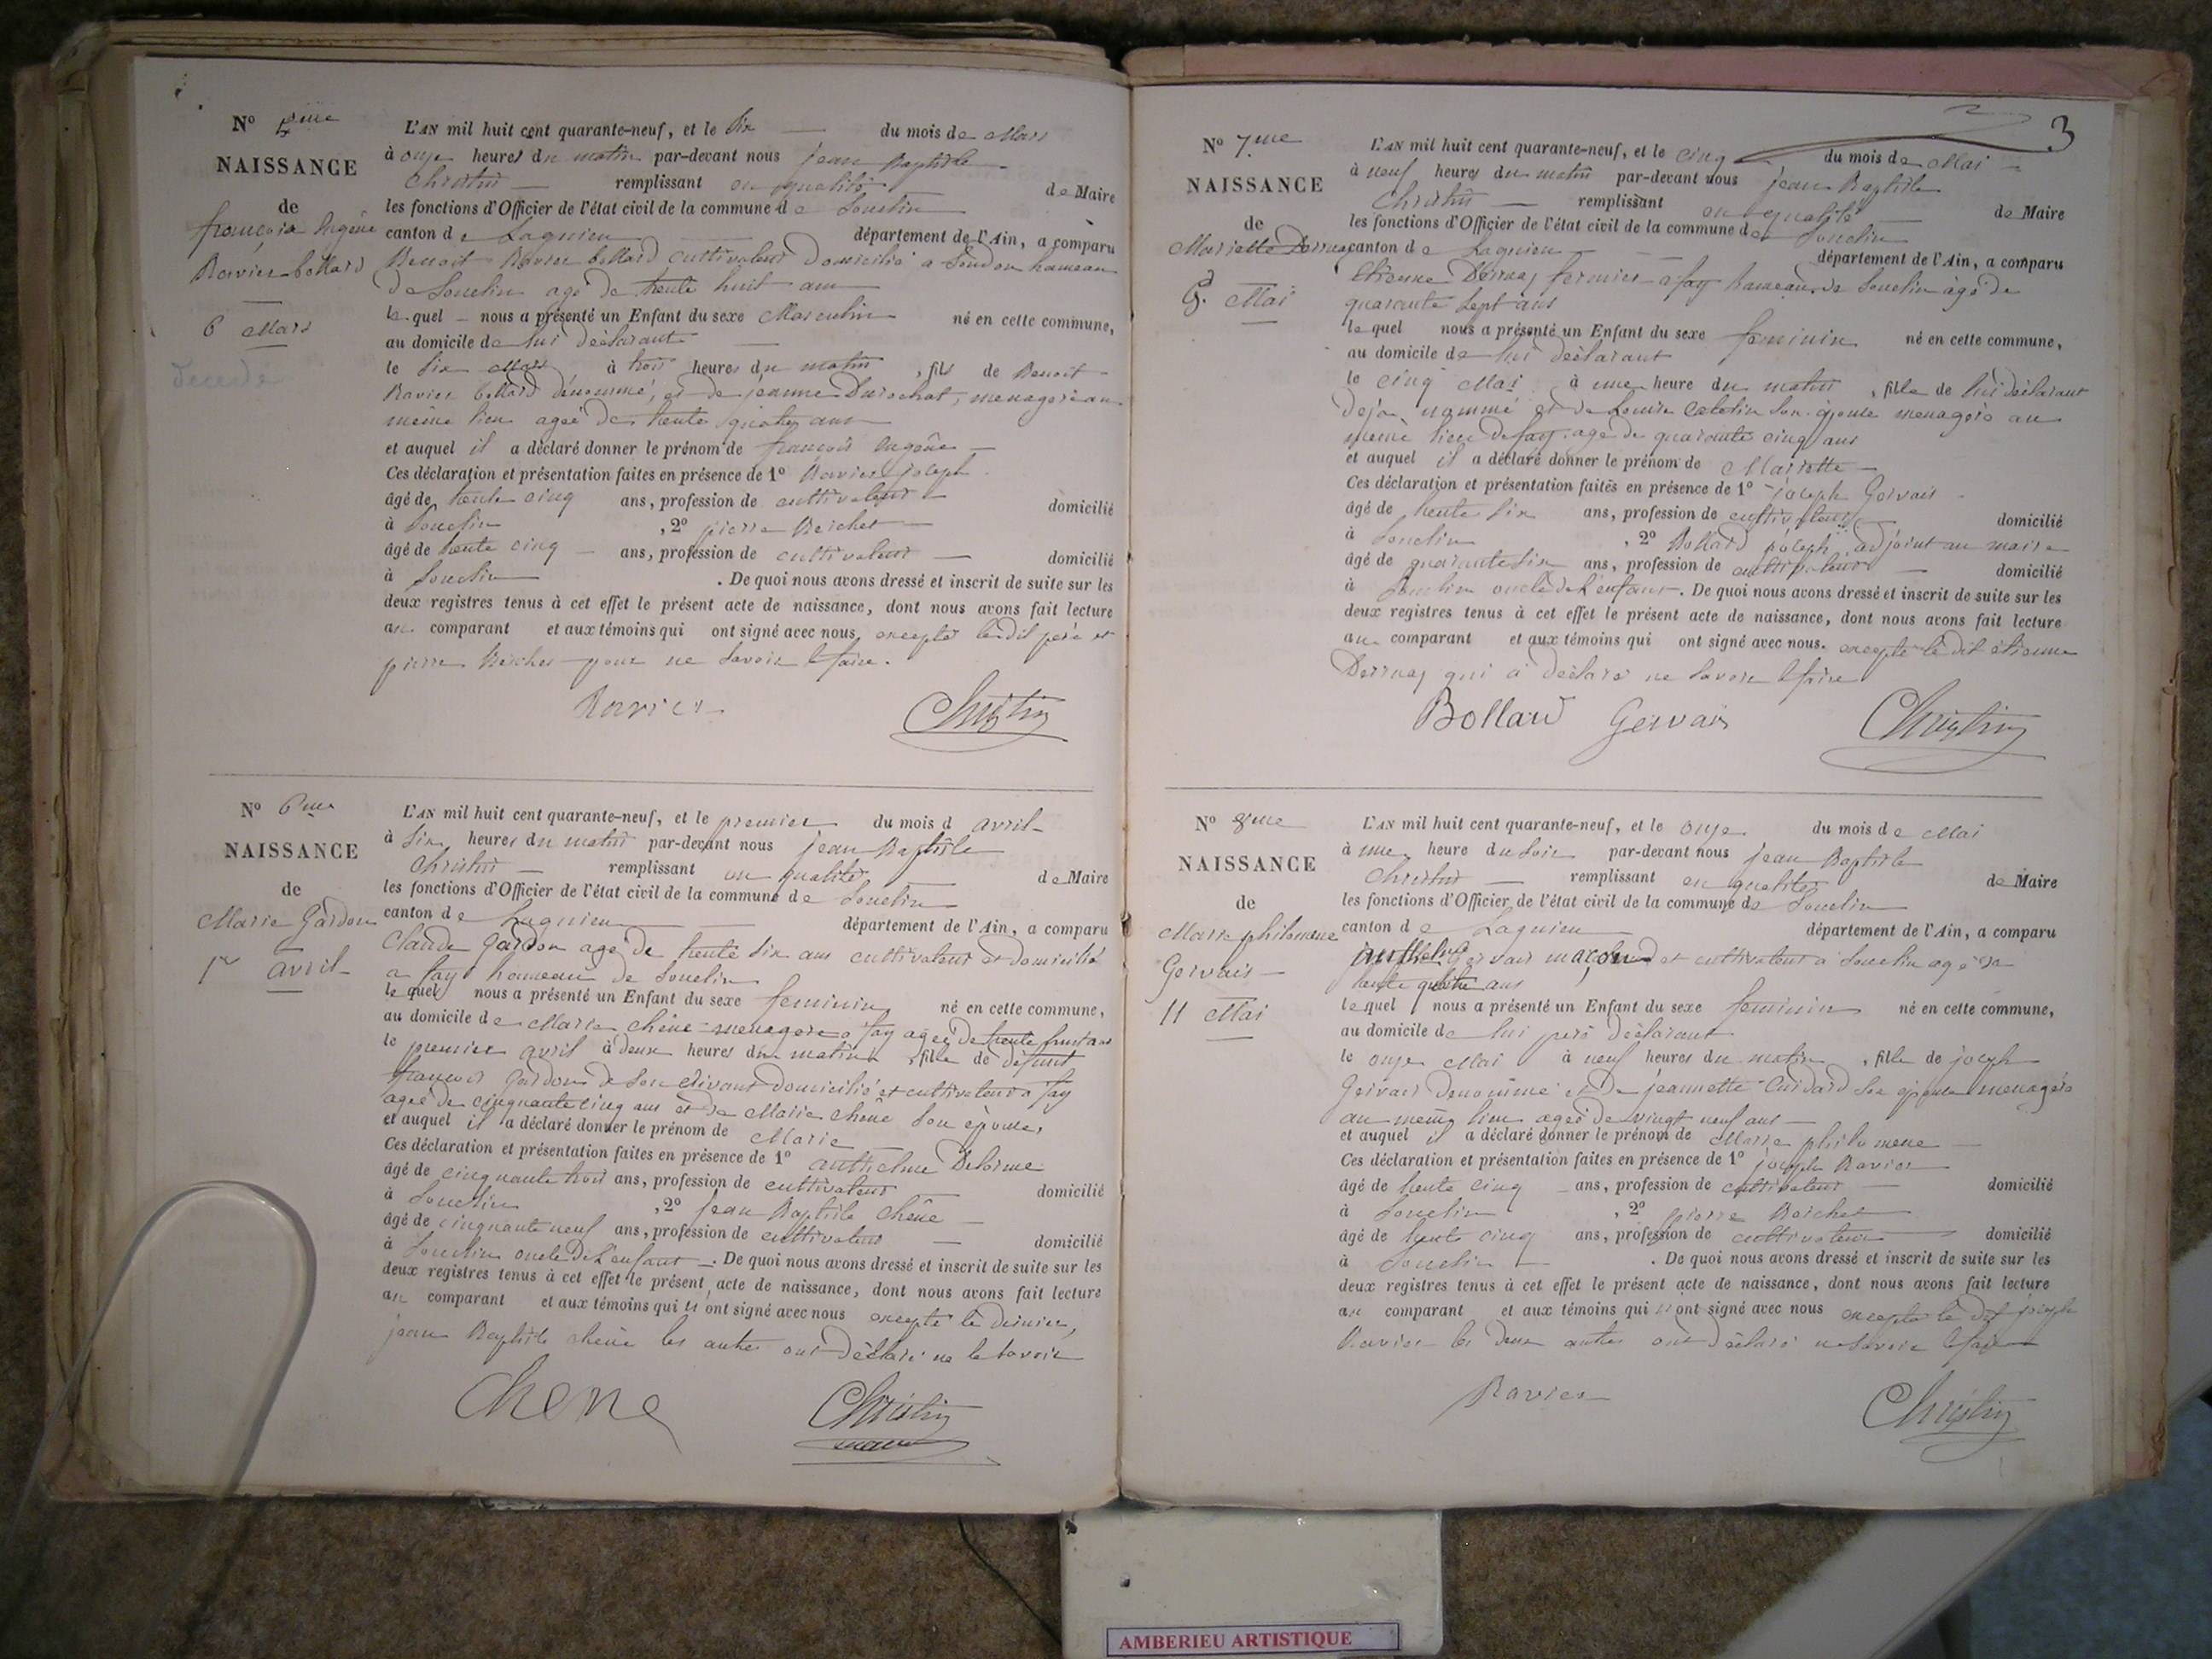 N° 5me
NAISSANCE
de
françois Eugêne
Ravier bollard
6 Mars
Decedé
L'AN mil huit cent quarante-neuf, et le six du mois de Mars
à onze heures du matin par-devant nous jean Baptiste
Christin remplissant en qualité de Maire
les fonctions d'Officier de l'état civil de la commune de Souclin
canton de Lagnieu département de l'Ain, a comparu
Benoit Ravier bollard cultivateur Domicilié a Soudon hameau
de Souclin agé de trente huit ans
le quel nous a présenté un Enfant du sexe Masculin né en cette commune,
au domicile de lui déclarant
le six Mars, à trois heures du matin, fils de Benoit
Ravier bollard dénommé, et de jeanne Durochat, menagere au
même lieu ageé de trente quatre ans
et auquel il a déclaré donner le prénom de françois Eugêne
Ces déclaration et présentation faites en présence de 1° Ravier joseph
âgé de trente cinq ans, profession de cultivateur domicilié
à Souclin, 2° pierre Reichet
âgé de trente cinq ans, profession de cultivateur domicilié
à Souclin. De quoi nous avons dressé et inscrit de suite sur les
deux registres tenus à cet effet le présent acte de naissance, dont nous avons fait lecture
au comparant et aux témoins qui ont signé avec nous excepté ledit pere et
pierre Reichet pour ne savoir le faire.
Ravier Christin
N° 6me
NAISSANCE
de
Marie Gardon
1er avril
L'AN mil huit cent quarante-neuf, et le premier du mois d avril
à six heures du matin par-devant nous jean Baptiste
Christin remplissant en qualité de Maire
les fonctions d'Officier de l'état civil de la commune de Souclin
canton de Lagnieu département de l'Ain, a comparu
Claude Gardon agé de trente six ans cultivateur et domicilié
a fay hameau de Souclin
le quel nous a présenté un Enfant du sexe feminin né en cette commune,
au domicile de Marie chêne menagere a fay ageé de trente huit ans
le premier avril à deux heures du matin, fille de défunt
françois Gardon de son vivant domicilié et cultivateur a fay
ageé de cinquante cinq ans et de Marie chêne son épouse,
et auquel il a déclaré donner le prénom de Marie
Ces déclaration et présentation faites en présence de 1° anthelme Delorme
âgé de cinquante trois ans, profession de cultivateur domicilié
à Souclin, 2° jean Baptiste chêne
âgé de cinquante neuf ans, profession de cultivateur domicilié
à Souclin oncle de l'enfant. De quoi nous avons dressé et inscrit de suite sur les
deux registres tenus à cet effet le présent acte de naissance, dont nous avons fait lecture
au comparant et aux témoins qui n'ont signé avec nous excepté le dernier,
jean Baptiste chêne les autres ont déclaré ne le savoir
Chene Christin
3
N° 7me
NAISSANCE
de
Mariette Derruaz
5. Mai
L'AN mil huit cent quarante-neuf, et le cinq du mois de Mai
à neuf heures du matin par-devant nous jean Baptiste
Christin remplissant en qualité de Maire
les fonctions d'Officier de l'état civil de la commune de Souclin
canton de Lagnieu département de l'Ain, a comparu
Etienne Derruaz fermier a fay hameau de Souclin âgé de
quarante sept ans
le quel nous a présenté un Enfant du sexe feminin né en cette commune,
au domicile de lui déclarant
le cinq Mai à une heure du matin, fille de lui déclarant
deja nommé et de Louise Catelin son épouse menagere au
même lieu de fay, age de quarante cinq ans
et auquel il a déclaré donner le prénom de Mariette
Ces déclaration et présentation faites en présence de 1° joseph Gervais
âgé de trente six ans, profession de cultivateur domicilié
à Souclin, 2° Bollard joseph adjoint au maire
âgé de quarante six ans, profession de cultivateur domicilié
à Souclin oncle de l'enfant. De quoi nous avons dressé et inscrit de suite sur les
deux registres tenus à cet effet le présent acte de naissance, dont nous avons fait lecture
au comparant et aux témoins qui ont signé avec nous. excepté le dit étienne
Derruaz qui a déclaré ne savoir le faire
Bollard Gervais Christin
N° 8me
NAISSANCE
de
Marie philomene
Gervais
11 Mai
L'AN mil huit cent quarante-neuf, et le onze du mois de Mai
à une heure du soir par-devant nous jean Baptiste
Christin remplissant en qualité de Maire
les fonctions d'Officier de l'état civil de la commune de Souclin
canton de Lagnieu département de l'Ain, a comparu
Gervais maçon et cultivateur a Souclin agé de
trente quatre ans
le quel nous a présenté un Enfant du sexe feminin né en cette commune,
au domicile de lui pere déclarant
le onze Mai à neuf heures du matin, fille de joseph
Gervais denommé et de jeannette Cuidard son épouse menagere
au même lieu ageé de vingt neuf ans
et auquel il a déclaré donner le prénom de Marie philomene
Ces déclaration et présentation faites en présence de 1° joseph Ravier
âgé de trente cinq ans, profession de cultivateur domicilié
à Souclin, 2° pierre Reichet
âgé de trente cinq ans, profession de cultivateur domicilié
à Souclin. De quoi nous avons dressé et inscrit de suite sur les
deux registres tenus à cet effet le présent acte de naissance, dont nous avons fait lecture
au comparant et aux témoins qui n'ont signé avec nous excepté le dit joseph
Ravier les deux autres ont déclaré ne savoir le faire
Ravier Christin
AMBERIEU ARTISTIQUE